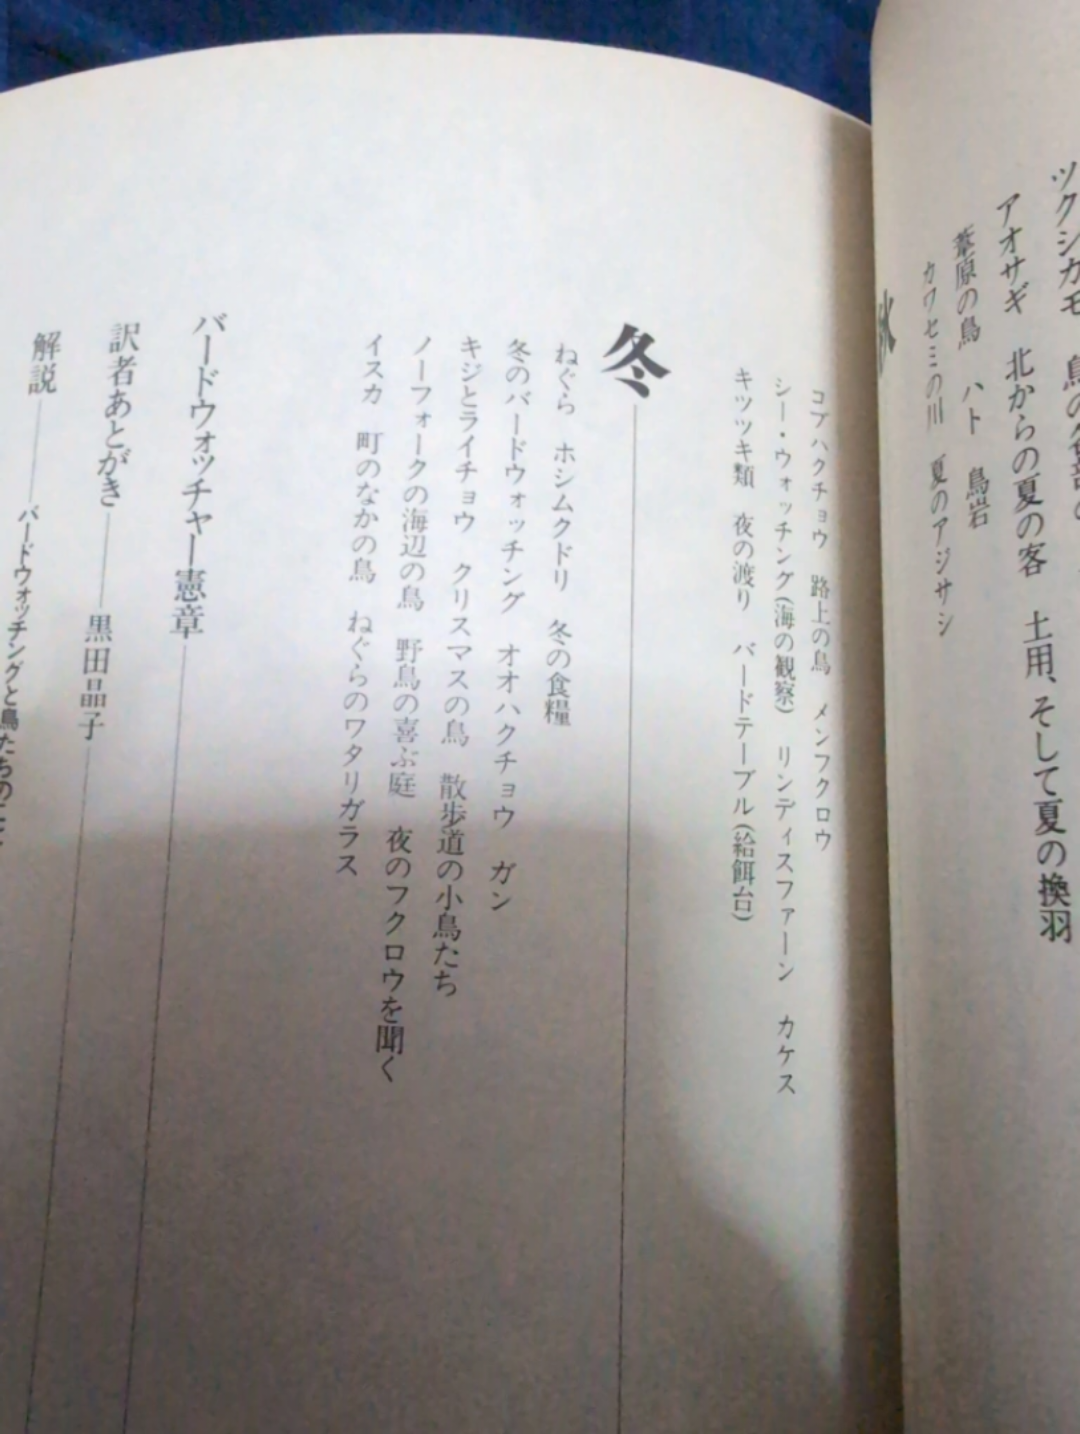 ツクシガモ 鳥の
アオサギ 北からの夏の客 土用、そして夏の換羽
葦原の鳥 ハト 鳥岩
カワセミの川 夏のアジサシ
秋
コブハクチョウ 路上の鳥 メンフクロウ
シー・ウォッチング(海の観察) リンディスファーン カケス
キツツキ類 夜の渡り バードテーブル(給餌台)
冬
ねぐら ホシムクドリ 冬の食糧
冬のバードウォッチング オオハクチョウ ガン
キジとライチョウ クリスマスの鳥 散歩道の小鳥たち
ノーフォークの海辺の鳥 野鳥の喜ぶ庭 夜のフクロウを聞く
イスカ 町のなかの鳥 ねぐらのワタリガラス
バードウォッチャー憲章
訳者あとがき 黒田晶子
解説 バードウォッチングと鳥たちの